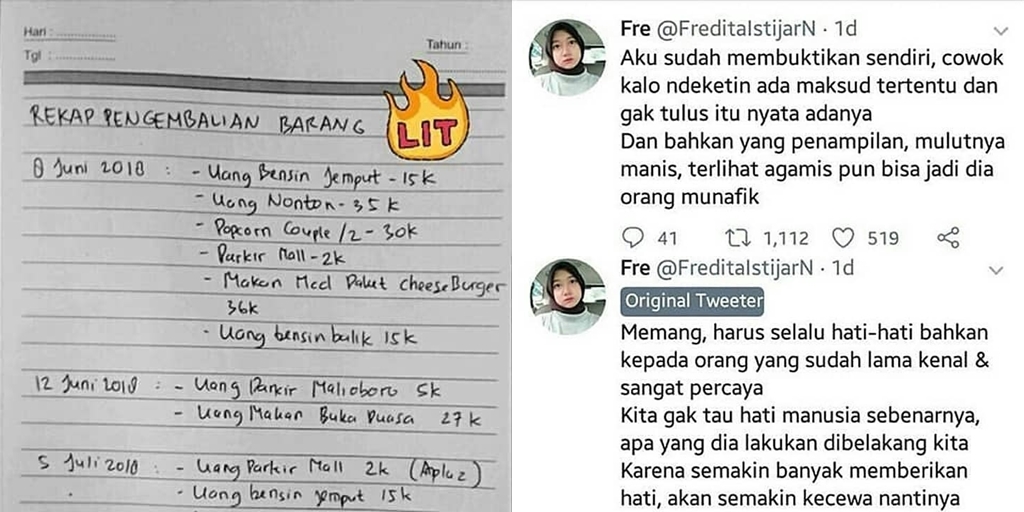 Hari : ..................
Tgl : ..................
Tahun :
REKAP PENGEMBALIAN BARANG
LIT
8 Juni 2018 : - Uang Bensin Jemput - 15 k
- Uang Nonton - 35 k
- Popcorn Couple /2 - 30k
- Parkir Mall - 2k
- Makan Mcd Paket cheeseBurger
36k
- Uang bensin balik 15k
12 Juni 2018 : - Uang Parkir Malioboro 5k
- Uang Makan Buka Puasa 27 k
5 Juli 2018 : - Uang Parkir Mall 2k (Apluz)
- Uang bensin jemput 15k
Fre @FreditaIstijarN · 1d
Aku sudah membuktikan sendiri, cowok
kalo ndeketin ada maksud tertentu dan
gak tulus itu nyata adanya
Dan bahkan yang penampilan, mulutnya
manis, terlihat agamis pun bisa jadi dia
orang munafik
41 1,112 519
Fre @FreditaIstijarN · 1d
Original Tweeter
Memang, harus selalu hati-hati bahkan
kepada orang yang sudah lama kenal &
sangat percaya
Kita gak tau hati manusia sebenarnya,
apa yang dia lakukan dibelakang kita
Karena semakin banyak memberikan
hati, akan semakin kecewa nantinya